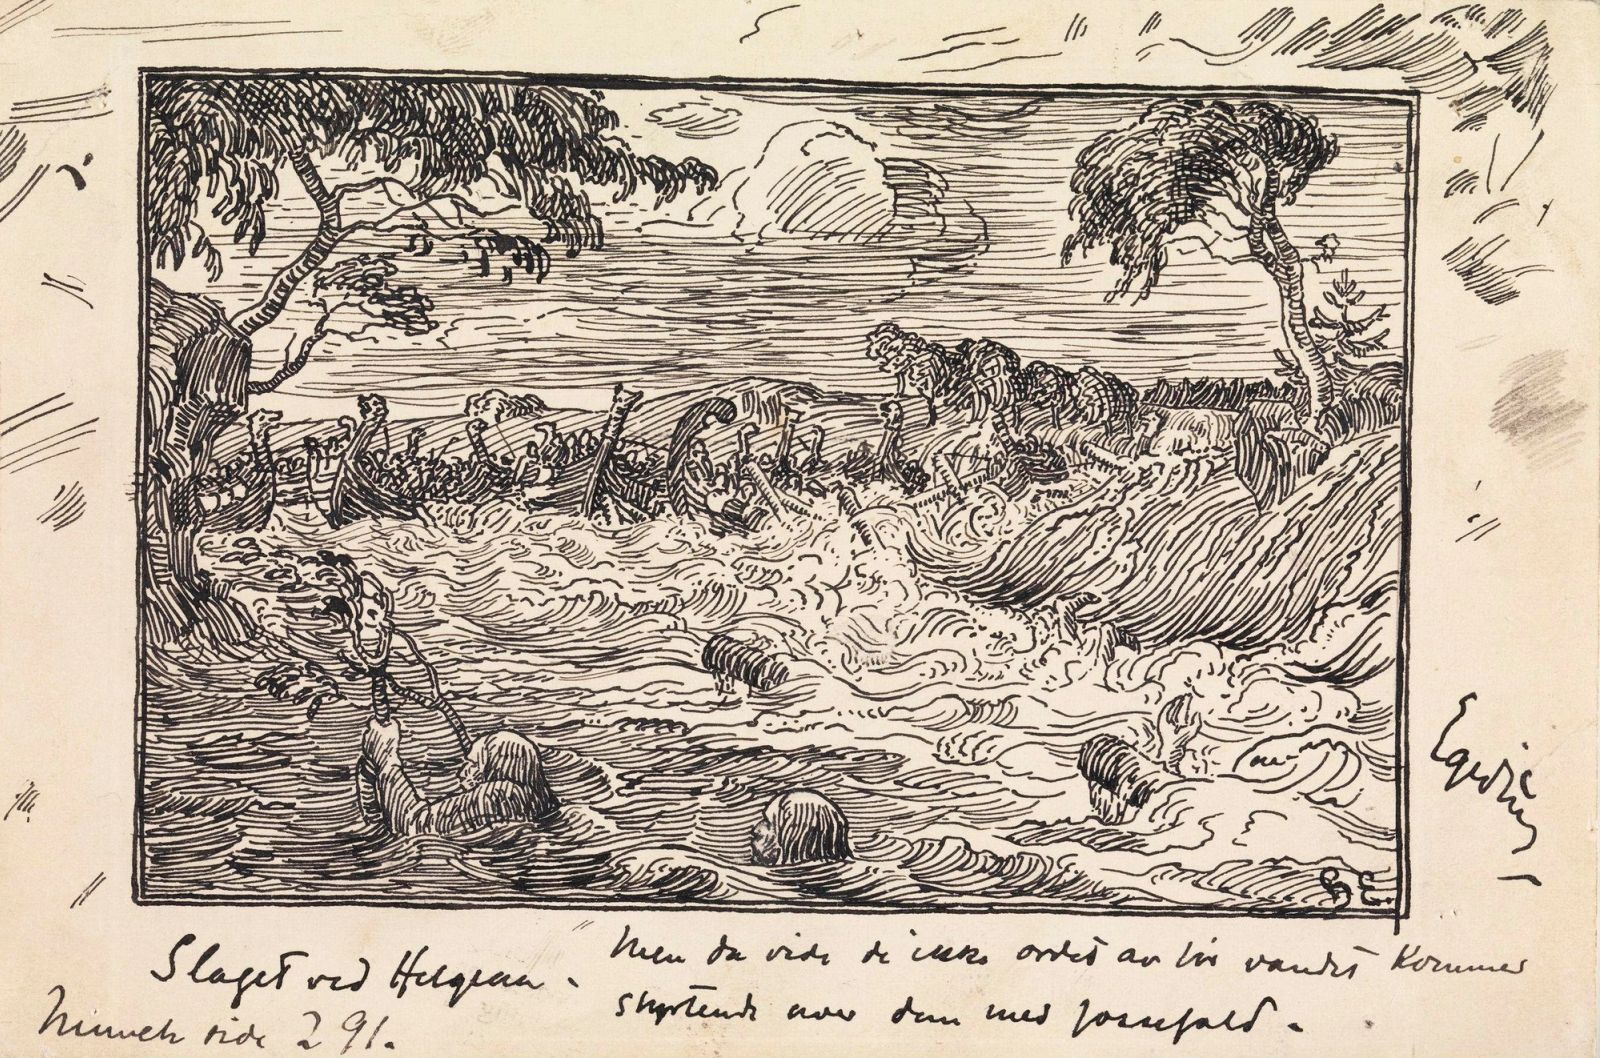 Egedius
HE.
Slaget ved Helgeaa.
Men da vide de ikke ordet av før vandet kommer
styrtende over dem med fossefald.
Munch side 291.